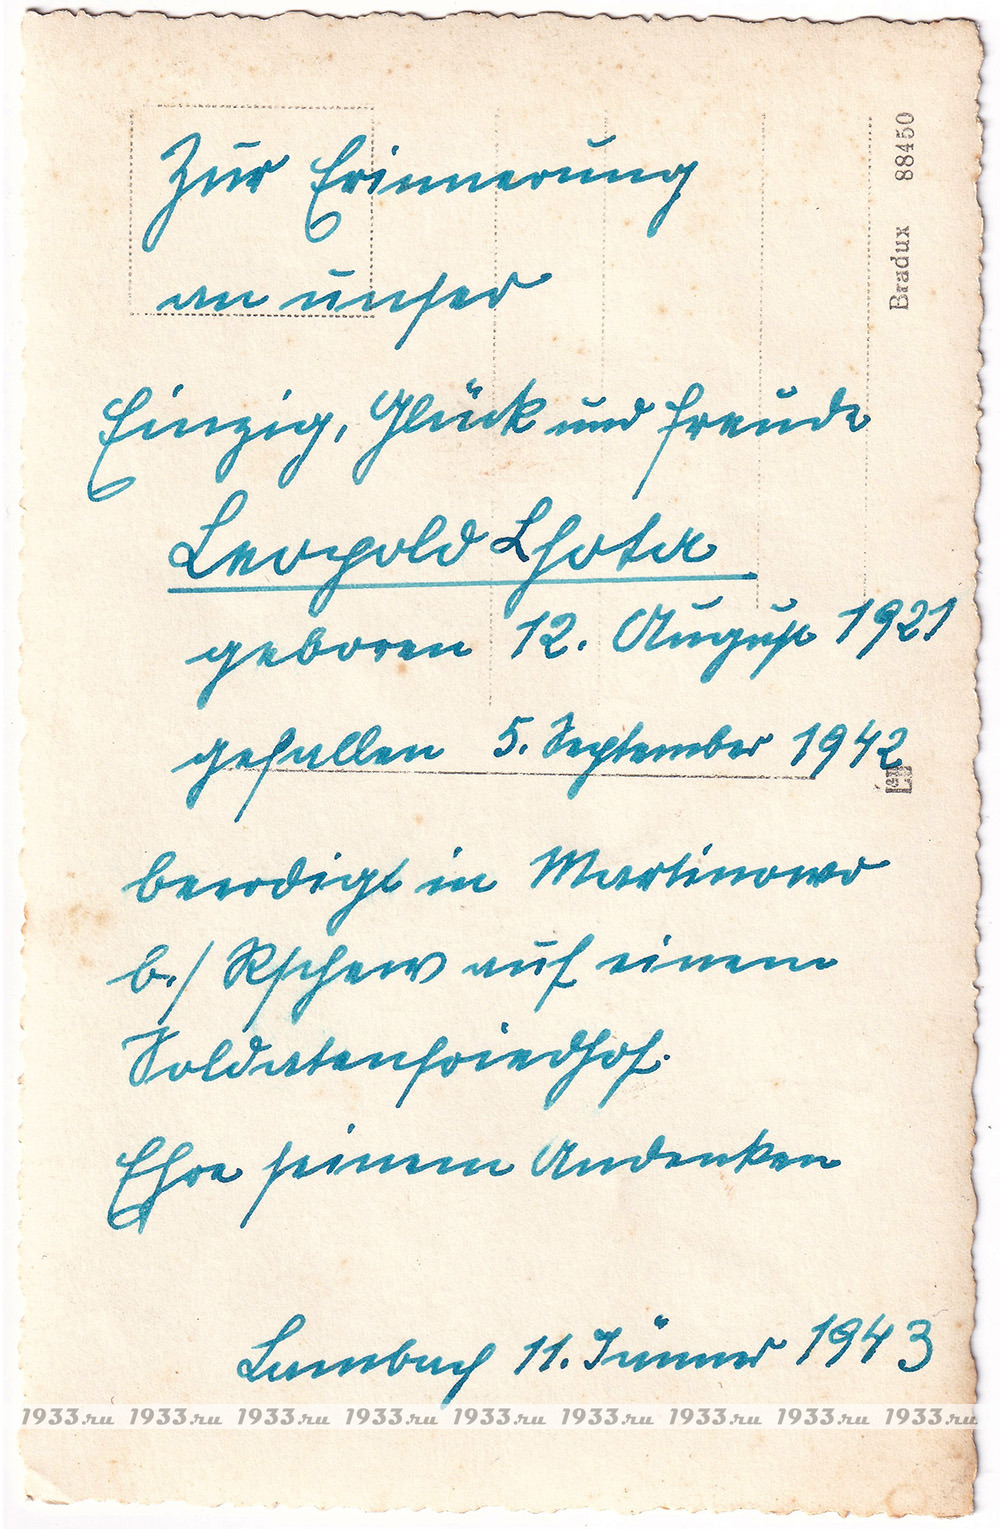 Zur Erinnerung
an unser
Einzig, Glück und Freude
Leopold Lhota
geboren 12. August 1921
gefallen 5. September 1942
beerdigt in Martinowo
b./ Rschew auf einem
Soldatenfriedhof.
Ehre seinem Andenken
Lambach 11. Jänner 1943
Bradux 88450
1933.ru 1933.ru 1933.ru 1933.ru 1933.ru 1933.ru 1933.ru 1933.ru 1933.ru